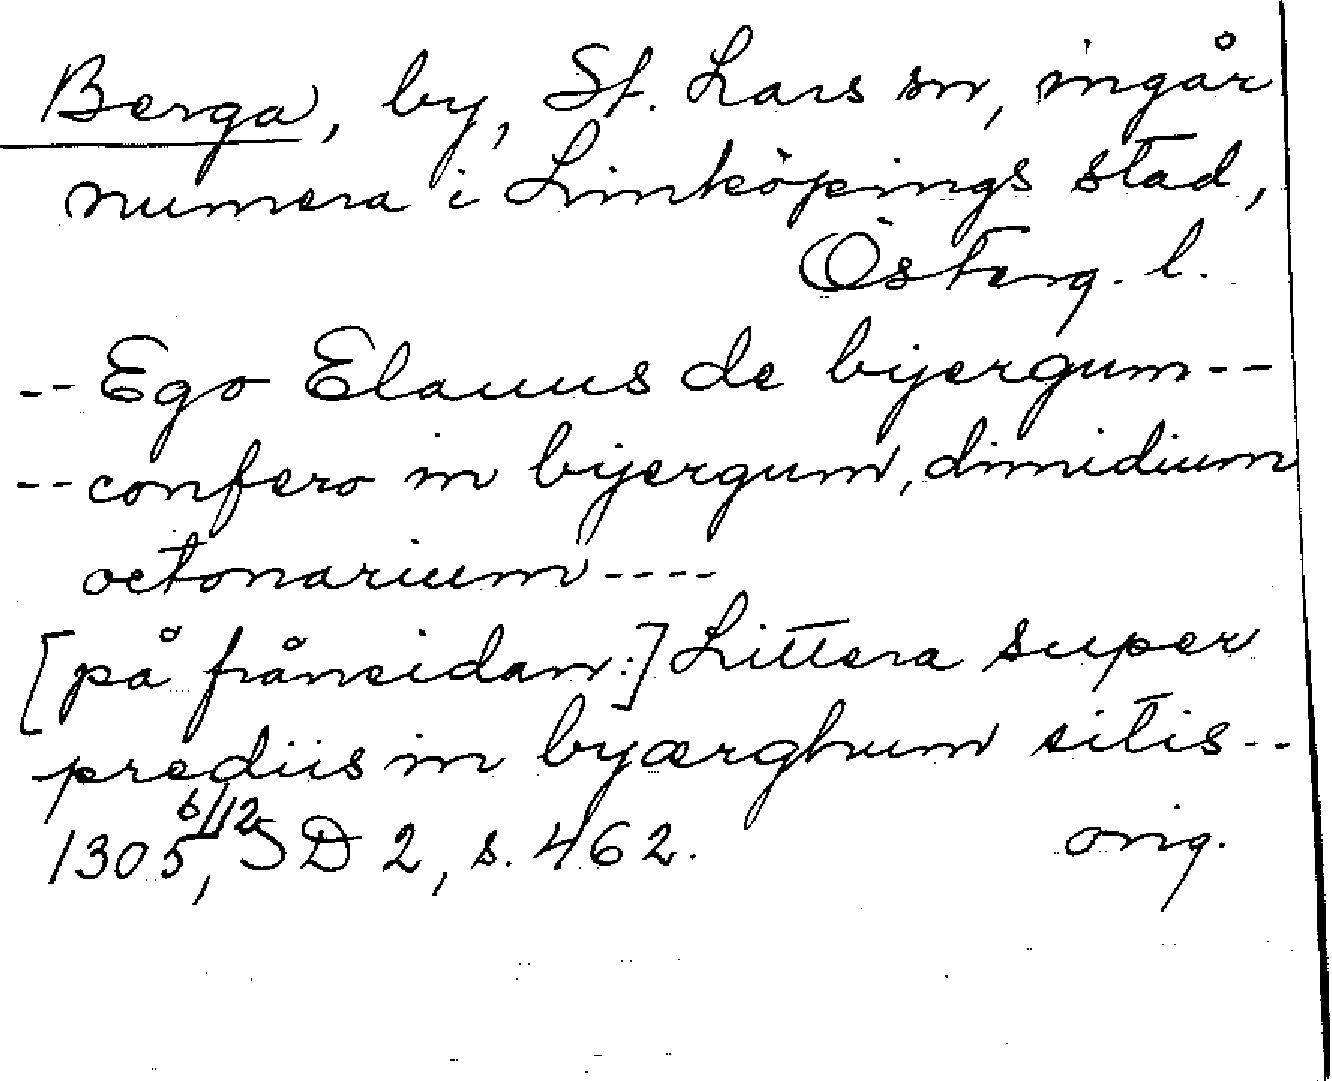 Berga, by, St. Lars sn, ingår
numera i Linköpings stad,
Österg. l.
-- Ego Elauus de bijergum --
-- confero in bijergum, dimidium
octonarium ----
[på frånsidan:] Littera super
prediis in byærghum sitis --
1305 6/12, SD 2, s. 462. orig.